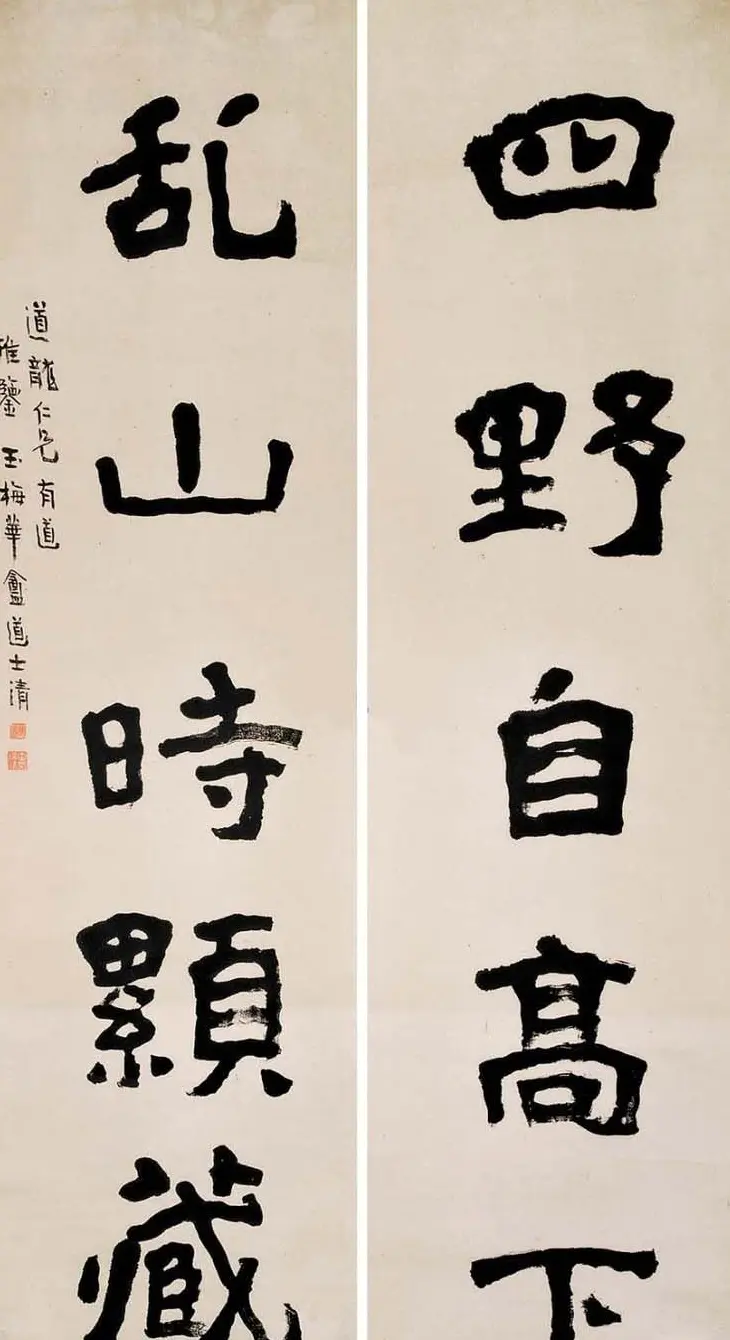 四野自高下
乱山時顯藏
道龍仁兄有道
雅鑒玉梅華盦道士清